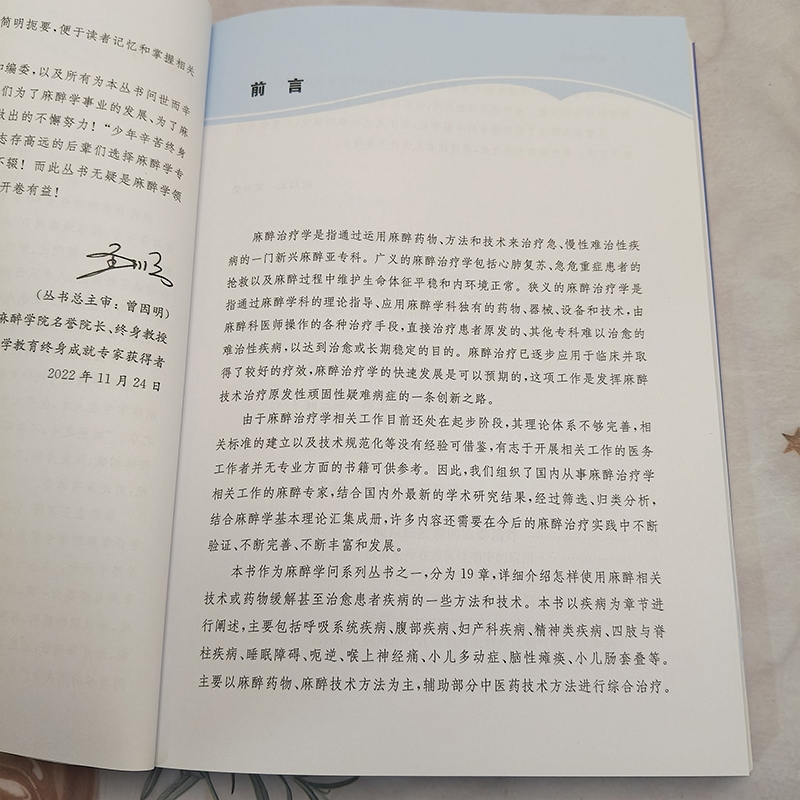 简明扼要,便于读者记忆和掌握相关
和编委,以及所有为本丛书问世而辛
们为了麻醉学事业的发展、为了麻
做出的不懈努力!“少年辛苦终身
志存高远的后辈们选择麻醉学专
不辍!而此丛书无疑是麻醉学领
开卷有益!
(丛书总主审:曾因明)
麻醉学院名誉院长、终身教授
学教育终身成就专家获得者
2022年11月24日
前言
麻醉治疗学是指通过运用麻醉药物、方法和技术来治疗急、慢性难治性疾
病的一门新兴麻醉亚专科。广义的麻醉治疗学包括心肺复苏、急危重症患者的
抢救以及麻醉过程中维护生命体征平稳和内环境正常。狭义的麻醉治疗学是
指通过麻醉学科的理论指导、应用麻醉学科独有的药物、器械、设备和技术,由
麻醉科医师操作的各种治疗手段,直接治疗患者原发的、其他专科难以治愈的
难治性疾病,以达到治愈或长期稳定的目的。麻醉治疗已逐步应用于临床并取
得了较好的疗效,麻醉治疗学的快速发展是可以预期的,这项工作是发挥麻醉
技术治疗原发性顽固性疑难病症的一条创新之路。
由于麻醉治疗学相关工作目前还处在起步阶段,其理论体系不够完善,相
关标准的建立以及技术规范化等没有经验可借鉴,有志于开展相关工作的医务
工作者并无专业方面的书籍可供参考。因此,我们组织了国内从事麻醉治疗学
相关工作的麻醉专家,结合国内外最新的学术研究结果,经过筛选、归类分析,
结合麻醉学基本理论汇集成册,许多内容还需要在今后的麻醉治疗实践中不断
验证、不断完善、不断丰富和发展。
本书作为麻醉学问系列丛书之一,分为19章,详细介绍怎样使用麻醉相关
技术或药物缓解甚至治愈患者疾病的一些方法和技术。本书以疾病为章节进
行阐述,主要包括呼吸系统疾病、腹部疾病、妇产科疾病、精神类疾病、四肢与脊
柱疾病、睡眠障碍、呃逆、喉上神经痛、小儿多动症、脑性瘫痪、小儿肠套叠等。
主要以麻醉药物、麻醉技术方法为主,辅助部分中医药技术方法进行综合治疗。